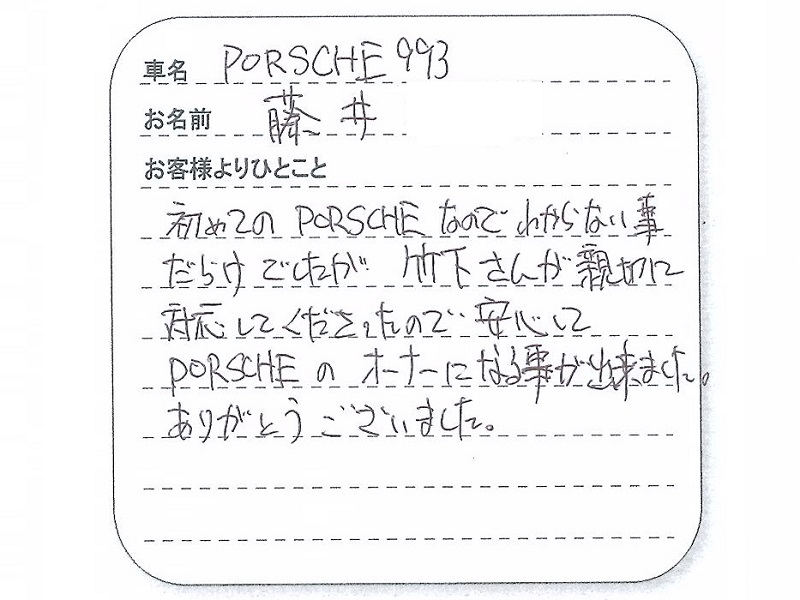 車名 PORSCHE 993
お名前 藤井
お客様よりひとこと
初めてのPORSCHEなのでわからない事
だらけでしたが 竹下さんが親切に
対応してくださったので 安心して
PORSCHEのオーナーになる事が出来ました。
ありがとうございました。